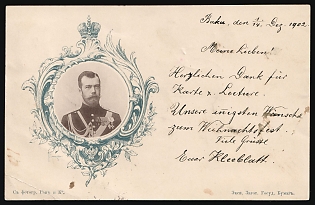 Baku, den 14 Dez. 1902.
Meine Lieben!
Herzlichen Dank für
Karte u. Lecture.
Unsere innigsten Wünsche
zum Weihnachtsfest.
Viele Grüsse
Euer Kleeblatt